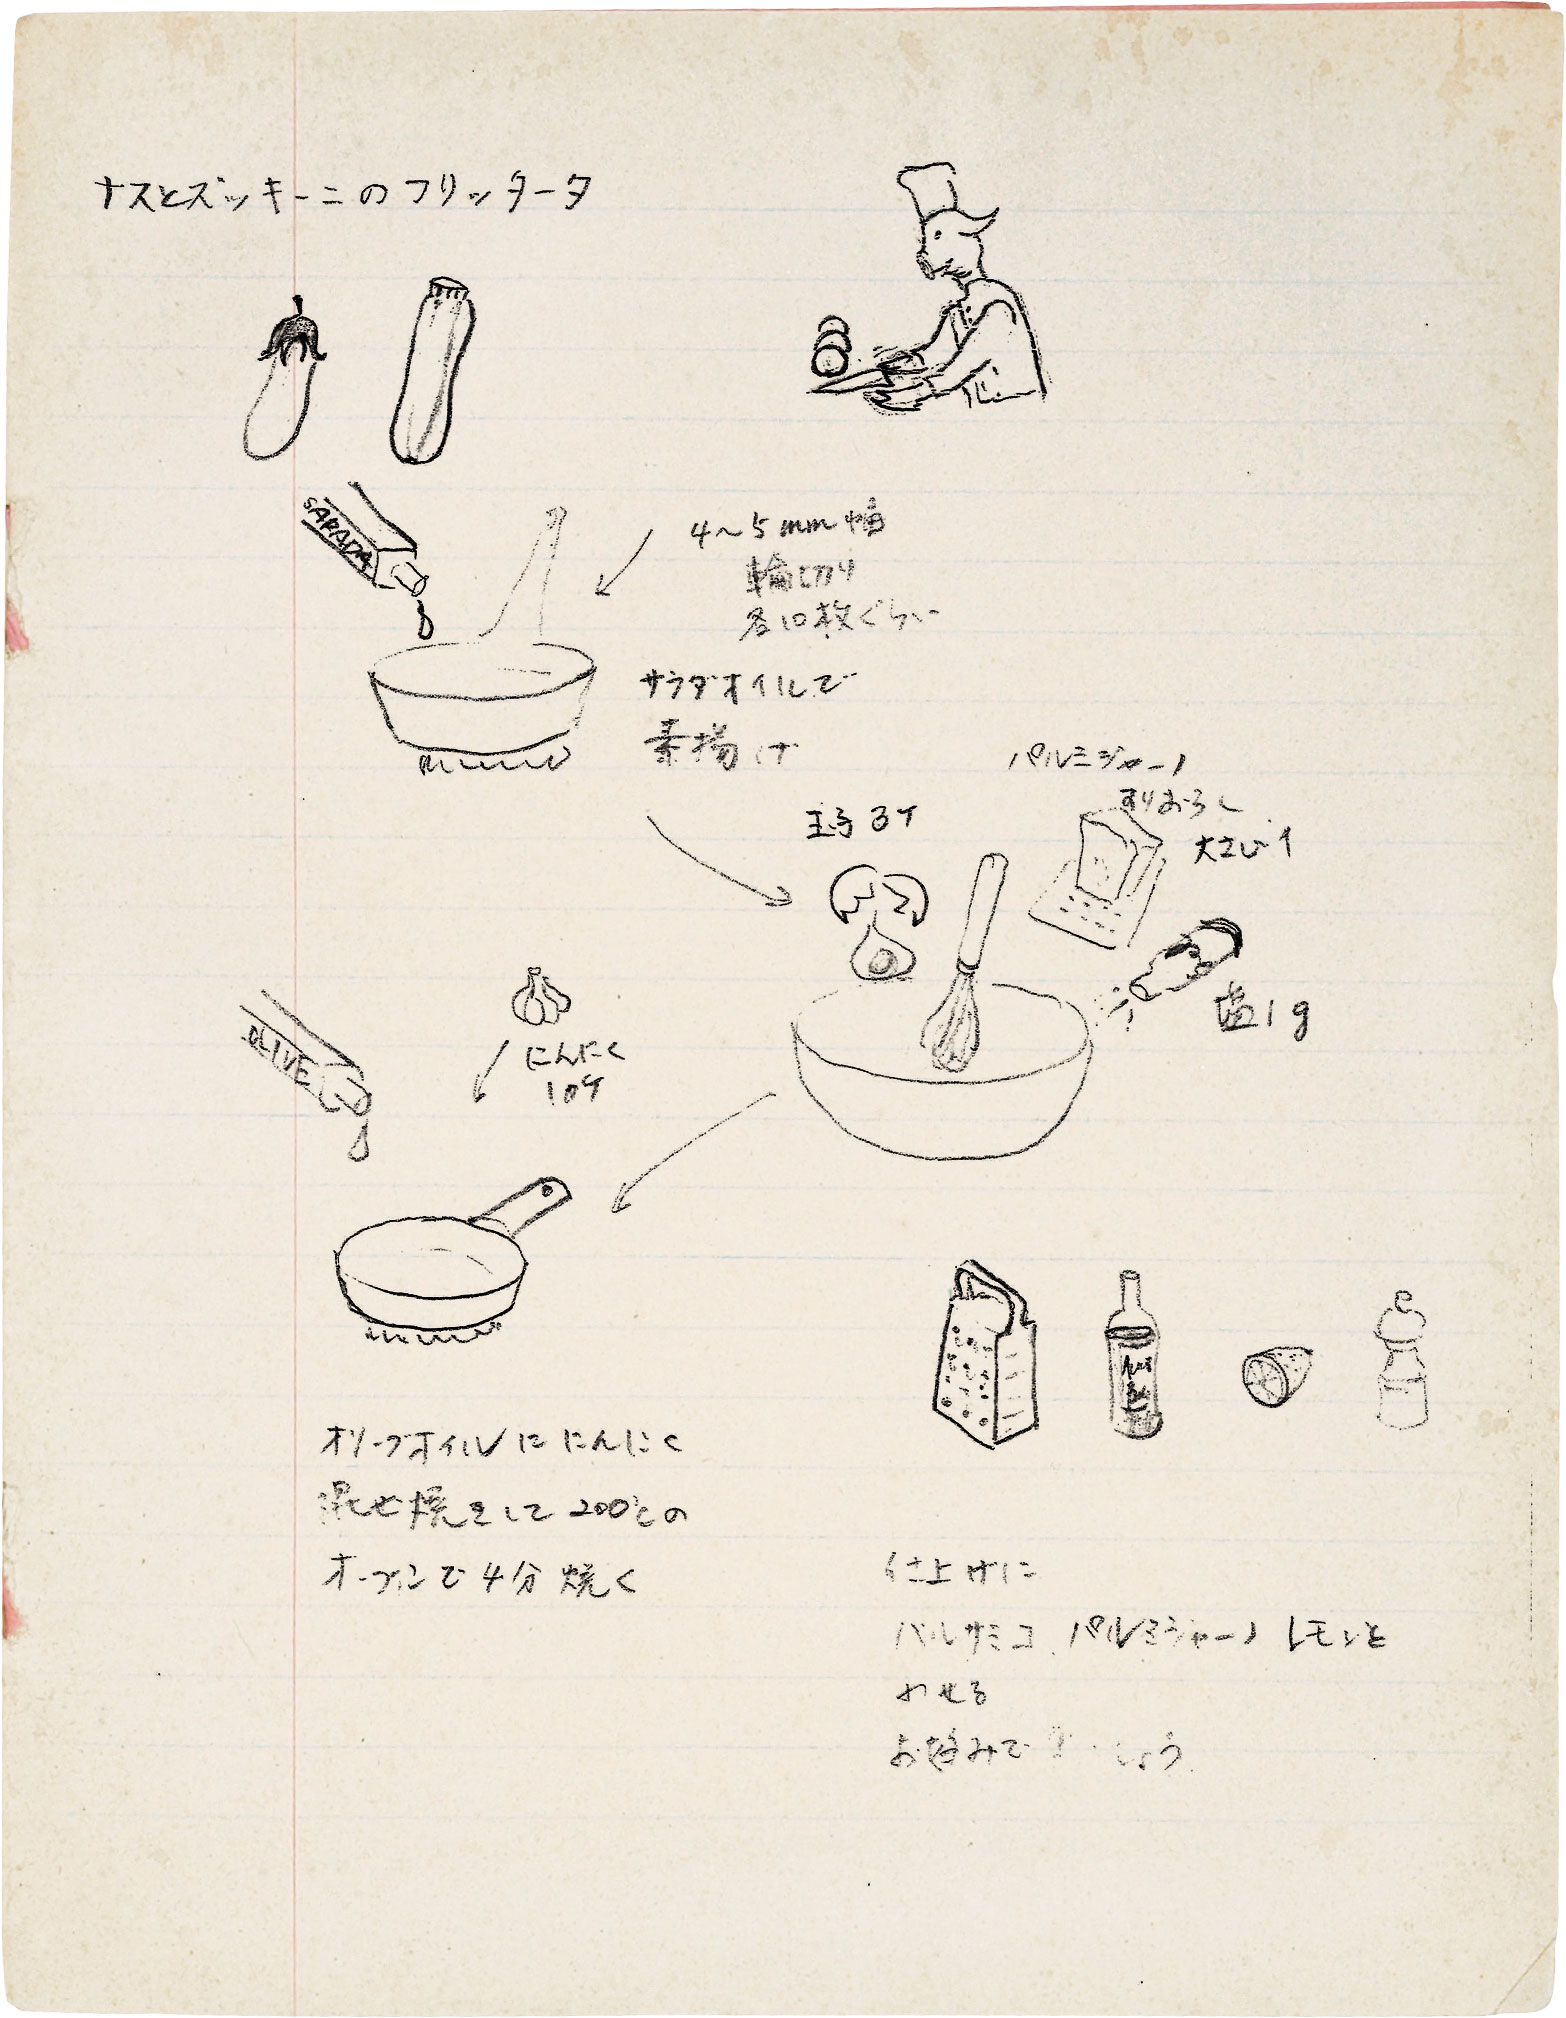 ナスとズッキーニのフリッタータ
SARADA
4〜5mm幅
輪切り
各10枚ぐらい
サラダオイルで
素揚げ
パルミジャーノ
すりおろし
大さじ1
玉子3ケ
塩1g
OLIVE
にんにく
1ケ
オリーブオイルににんにく
混ぜ焼きして200℃の
オーブンで4分焼く
仕上げに
バルサミコ、パルミジャーノ レモンと
わせる
お好みで しょう